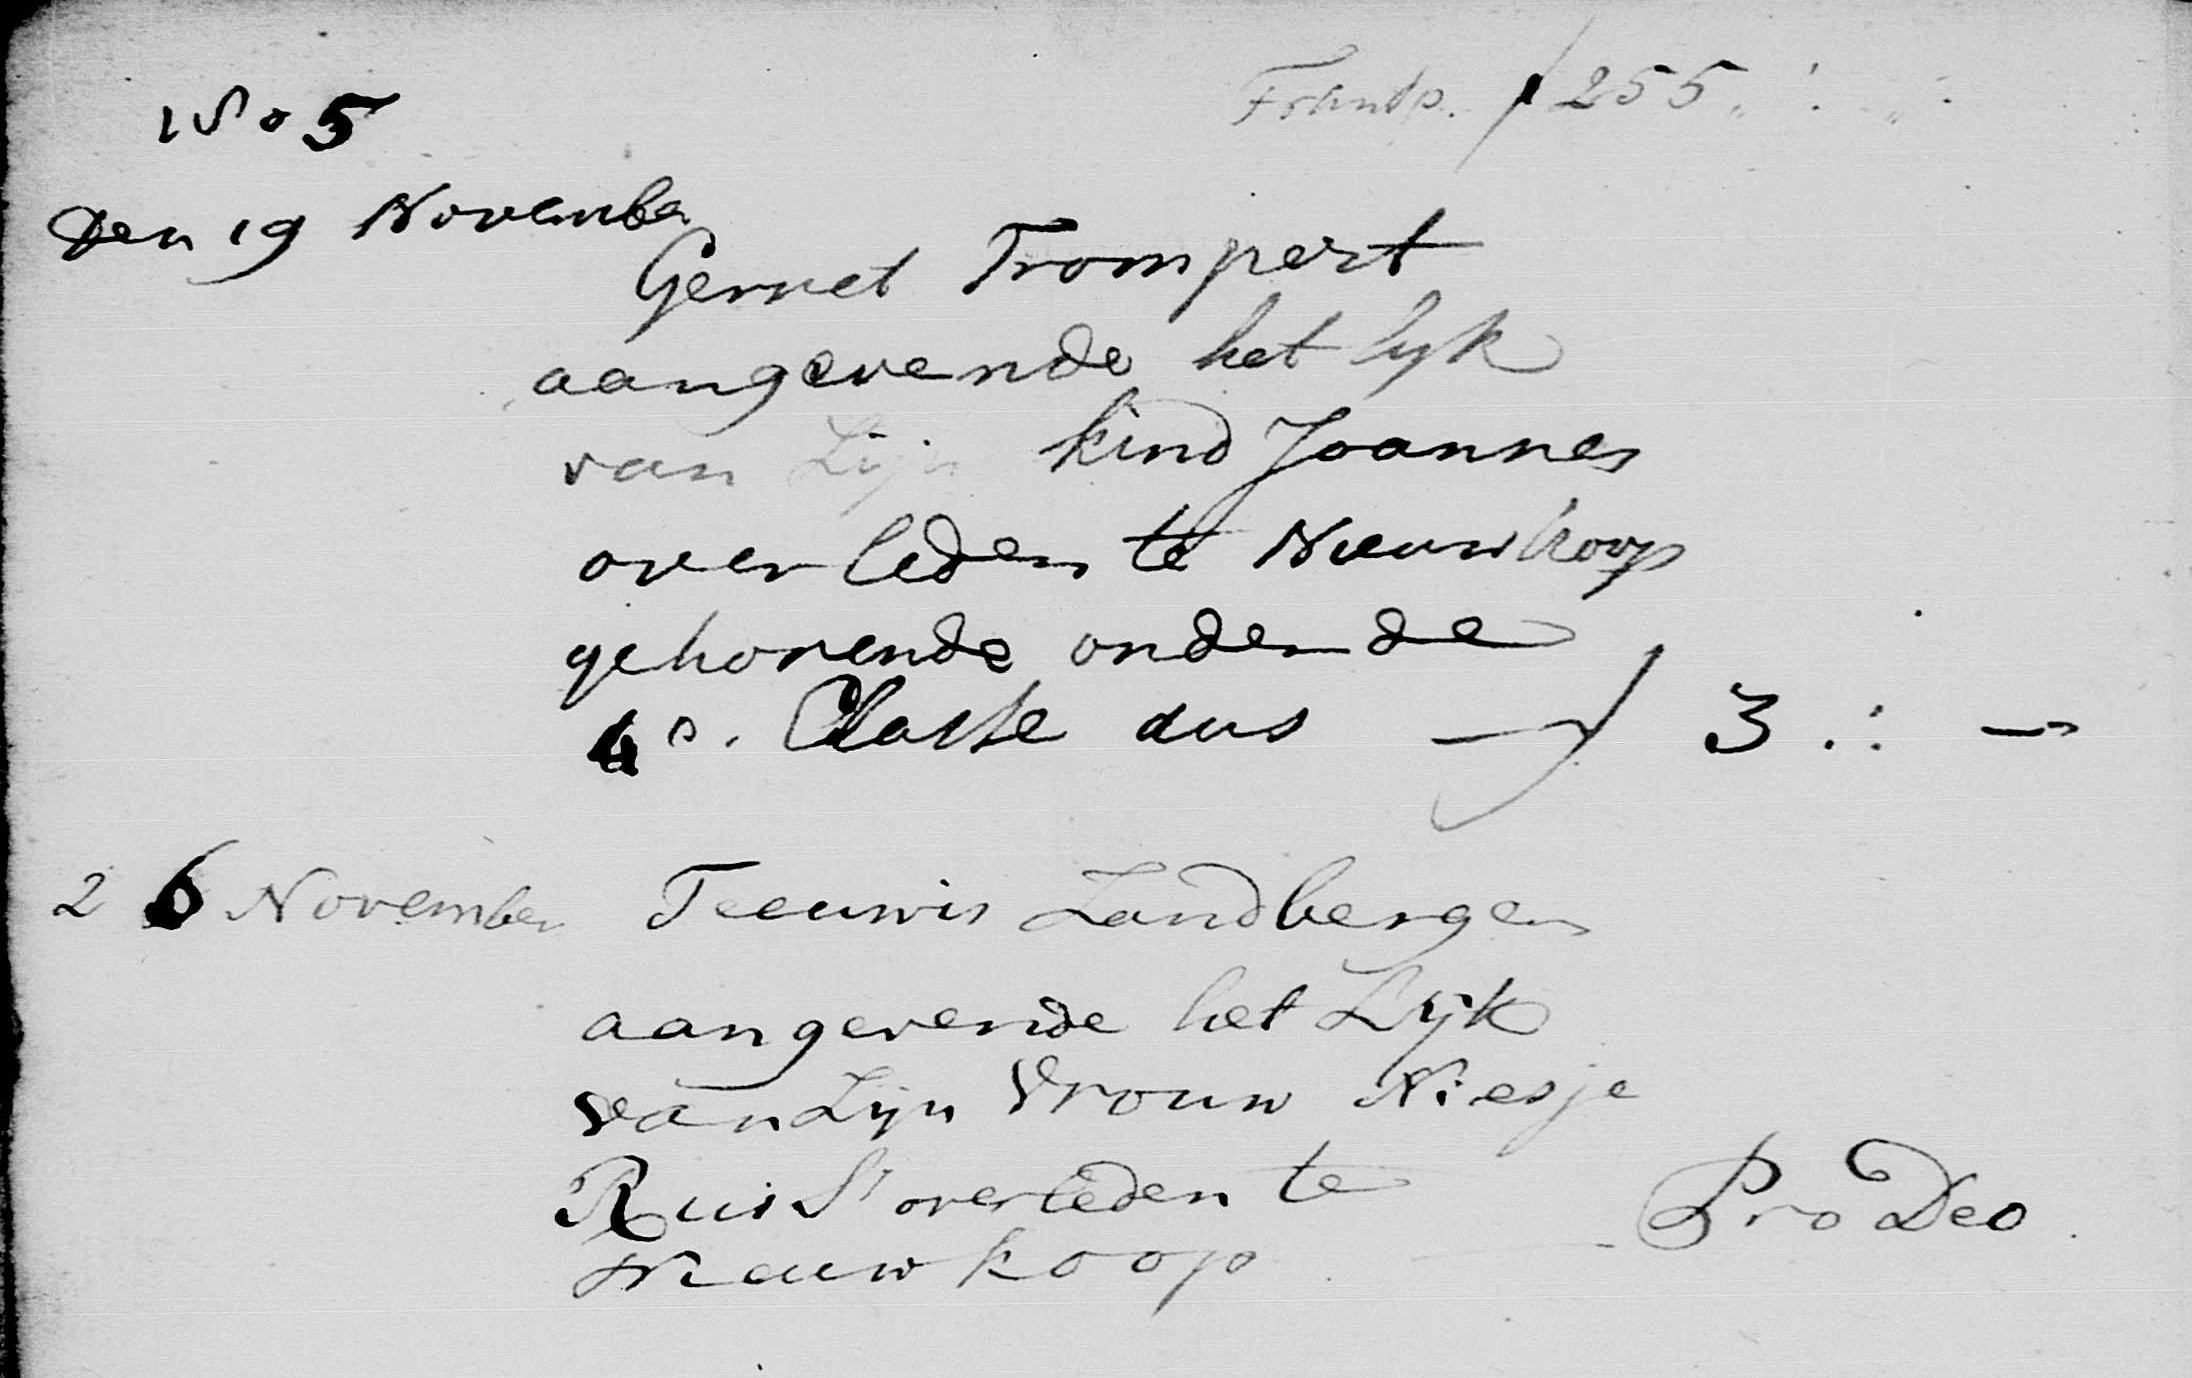 Transp. ƒ 255 „ : „ :
1805
Den 19 November
Gerret Trompert
aangevende het lyk
van Zijn kind Joannes
overleden te Nieuwkoop
gehorende onder de
4e. Classe dus — ƒ 3 . : —
26 November Teeuwis Zandbergen
aangevende het Lijk
van Zijn Vrouw Niesje
overleden te
Nieuwkoop - Pro Deo